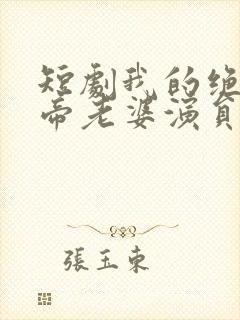 短劇我的绝
帝老婆演員
張玉東